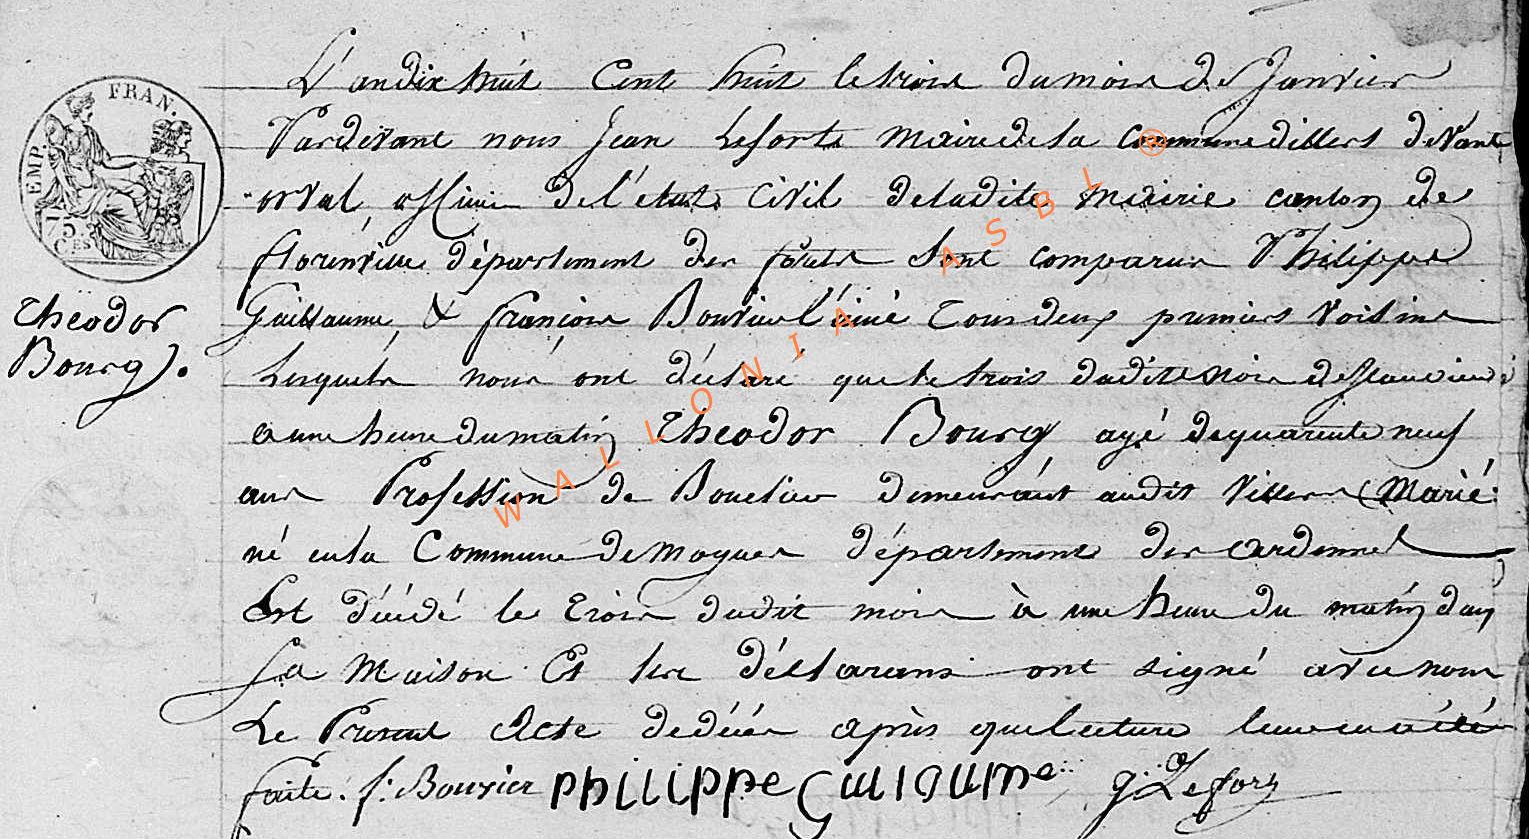 EMP. FRAN.
75
C.ES
Theodor
Bourg.
L'an dix huit Cent huit le trois du mois de Janvier
Pardevant nous Jean Leforte Maire de la Commune dillers devant
orval, officier de l'état Civil de ladite Mairie canton de
florenville département des forets Sont comparus Philippe
Guillaume, & françois Bouvier l'ainé tous deux premiers voisins
Lesquels nous ont déclaré que le trois dudit mois de Janvier
a une heure du matin Theodor Bourg agé de quarente neuf
ans Profession de demeurant audit Villers (Marié
né en la Commune de Moguer département des ardennes
Est décédé le trois dudit mois à une heure du matin dans
sa Maison Et les déclarans ont signé avec nous
Le Present Acte de décés après que lecture leur en a été
faite. f: Bouvier PhiLippe GuiLiaume g Lefort
WALLONIA ASBL ®